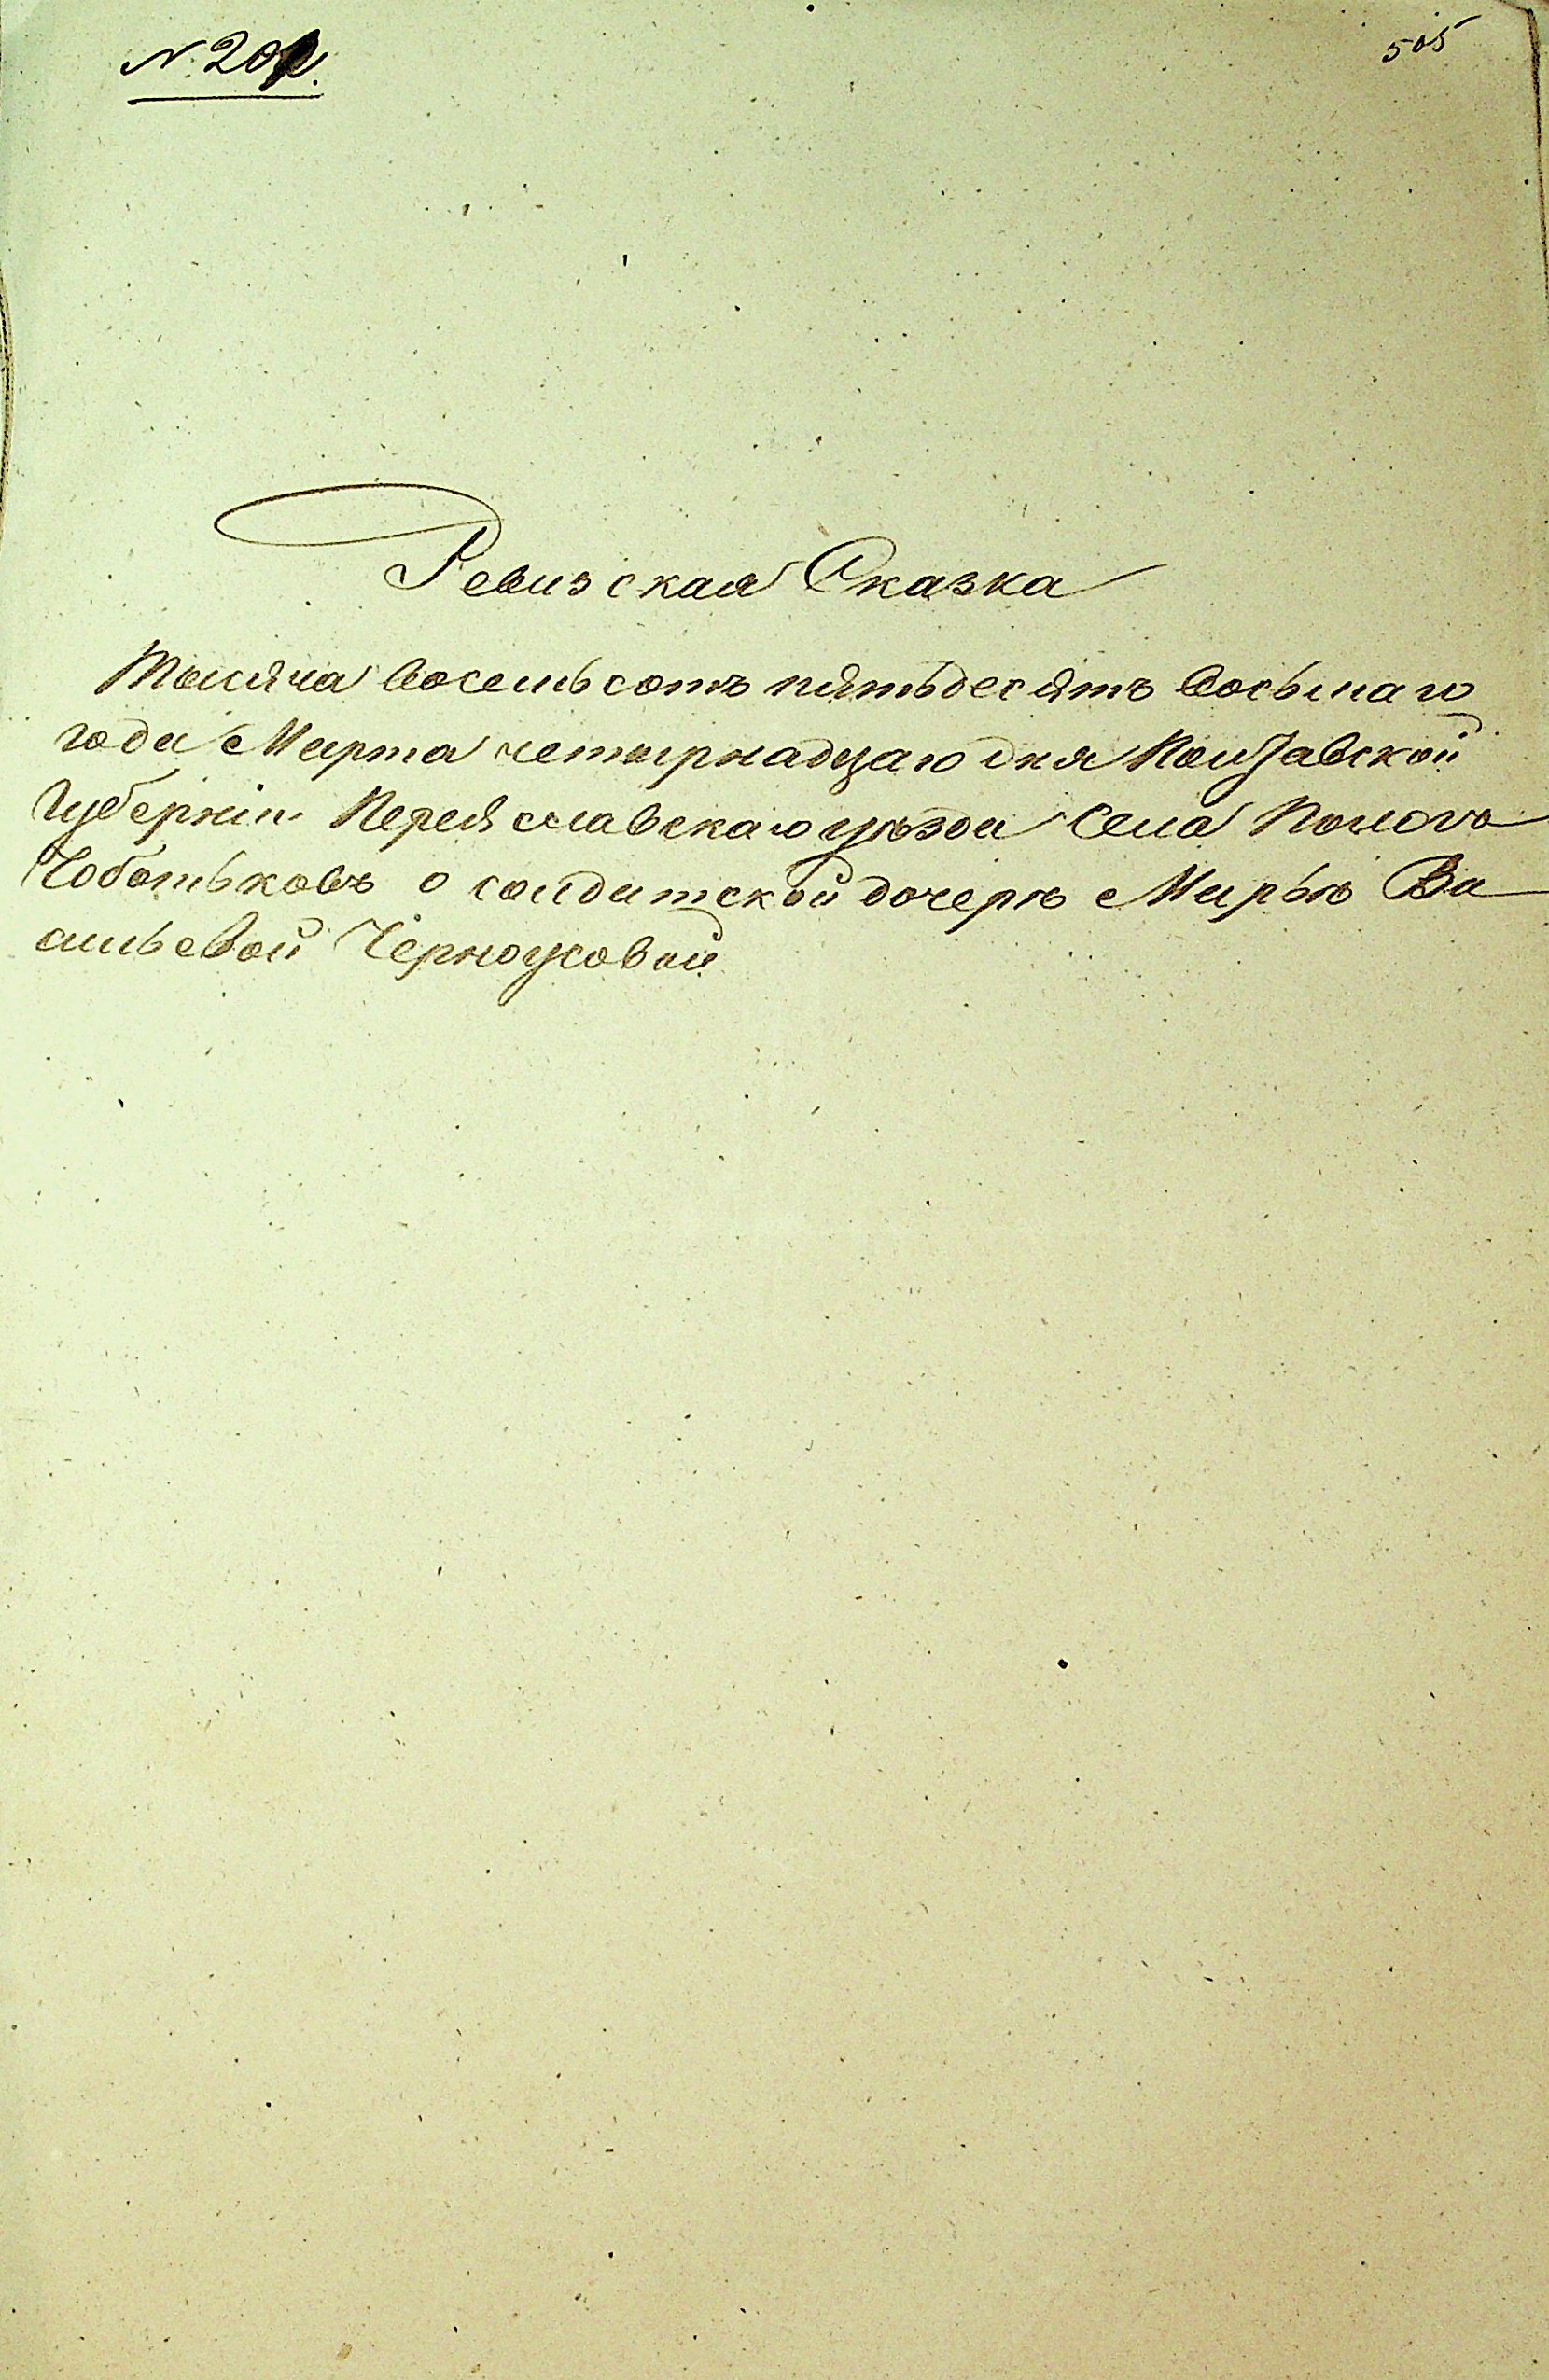 505
Ревизская Сказка
Тысяча восемьсотъ пятьдесятъ восьмаго
года Марта четырнадцаго дня Полтавской
Губерніи Переяславскаго уѣзда Села Полого
Чобатьковъ о солдатской дочерѣ Марьѣ Ва
сильевой Черноусовой